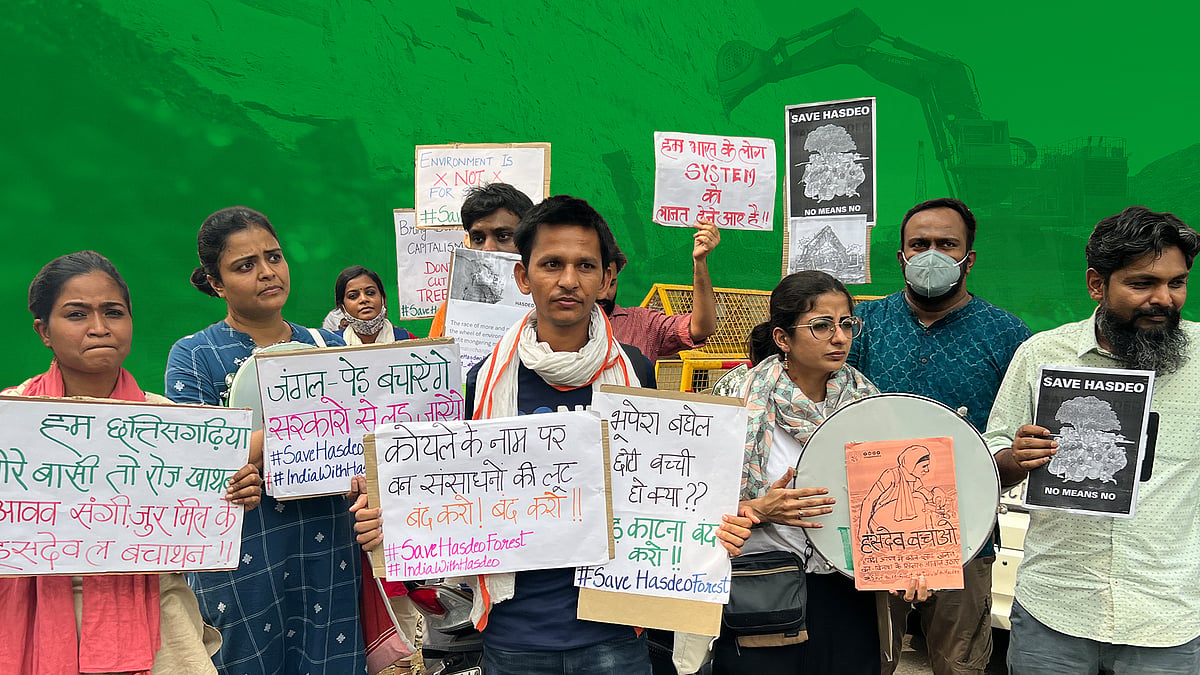 ENVIRONMENT IS
X NOT X
FOR
#Sav
CAPITALISM
DON'T
CUT
TREE
#Save
हम भारत के लोग
SYSTEM
को
लानत देने आए है !!
SAVE HASDEO
NO MEANS NO
HASDEO
The race of more and
the wheel of environm
जंगल-पेड़ बचाएंगे
सरकारो से लड़ जाएंगे
#SaveHasdeo
#IndiaWithHas
हम छत्तिसगढ़िया
बोरे बासी तो रोज खाथन
आवव संगी जुर मिल के
हसदेव ल बचाथन !!
कोयले के नाम पर
वन संसाधनो की लूट
बंद करो! बंद करो!!
#SaveHasdeoForest
#IndiaWithHasdeo
भूपेश बघेल
छोटी बच्ची
हो क्या??
काटना बंद
करो !!
#Save HasdeoForest
हसदेव बचाओ
SAVE HASDEO
NO MEANS NO